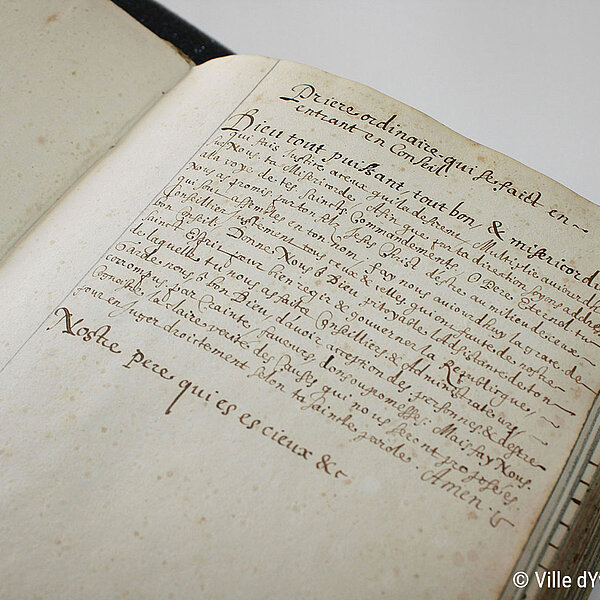 Priere ordinaire qui se faict en
entrant en Conseil
Dieu tout puissant, tout bon, & misericordi
qui fais Justice a ceux qui la desirent, Multiplie aujourd
sur Nous ta Misericorde. Afin que par ta direction soyons adres
a la voye de tes saincts Commandements. O Pere Eternel tu
Nous as promis par ton filz Jesus Christ d'estre au milieu de ceux
qui sont assemblez en ton nom. fay nous aujourdhuy la grace de
Conseiller justement tous ceux & celles qui ont faute de nostre
bon Conseil. Donne Nous ô Dieu pitoyable l'assistance de ton
sainct Esprit pour bien regir & gouverner la Republique,
de laquelle tu nous as faits Conseilliers & Administrateurs
Garde nous, ô bon Dieu, d'avoir acception des personnes, & d'estre
corrompus par crainte, faveurs, dons ou promesses. Mais fay Nous
Connoistre la claire verité des causes qui nous seront proposées
pour en juger droitement selon ta saincte parole. Amen
Nostre pere qui es es cieux &c
© Ville dYv